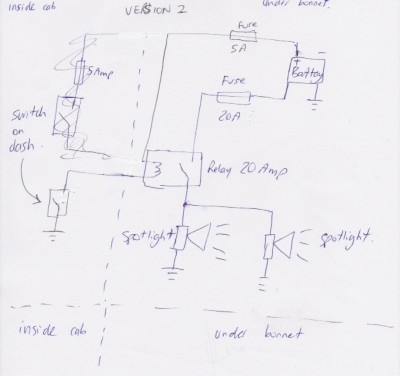 inside cab
VERSION 2
under bonnet.
Fuse
5A
5Amp
Battery
Fuse
20A
switch
on
dash.
Relay 20 Amp
spotlight
spotlight.
inside cab
under bonnet